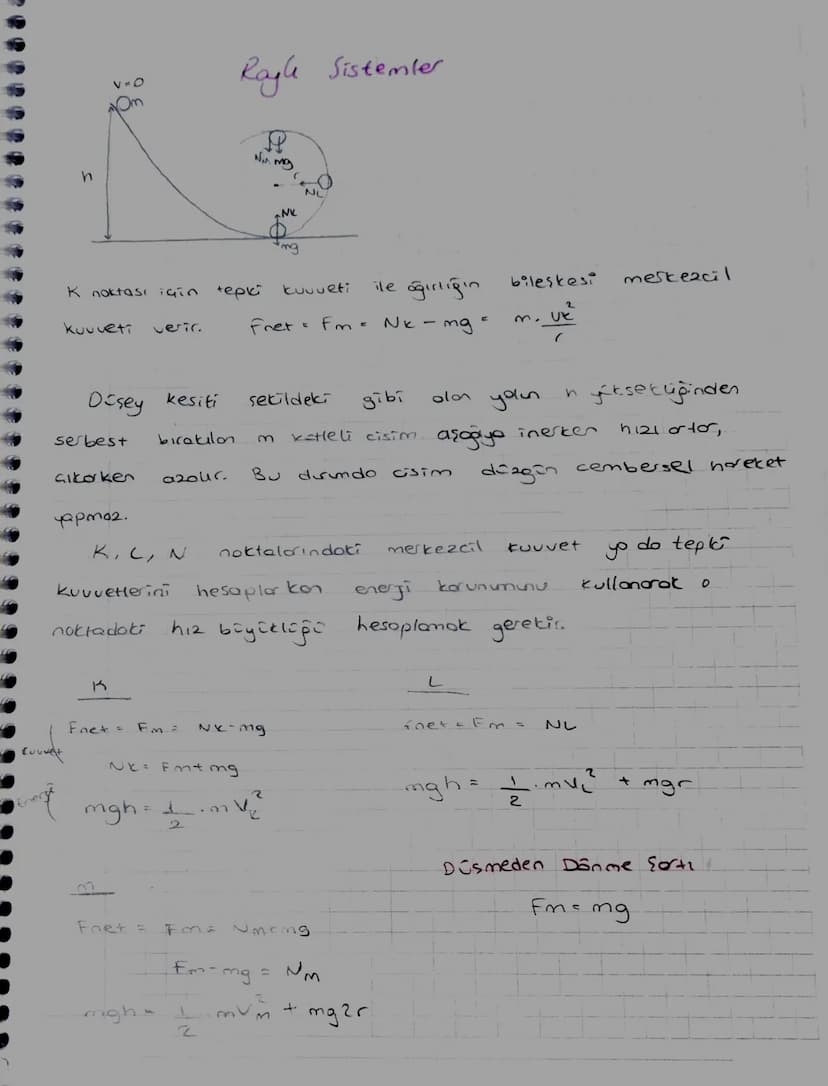 Raylı Sistemler
v=0
m
h
Nm mg
r
NL
NK
mg
K noktası için tepki kuvveti ile ağırlığın bileşkesi merkezcil
kuvveti verir. Fnet = Fm = Nk - mg = m. Vk²/r
Düşey kesiti şekildeki gibi olan yolun h yüksekliğinden
serbest bırakılan m kütleli cisim aşağıya inerken hızı artar,
çıkarken azalır. Bu durumda cisim düzgün çembersel hareket
yapmaz.
K, L, N noktalarındaki merkezcil kuvvet ya da tepki
kuvvetlerini hesaplarken enerji korunumunu kullanarak o
noktadaki hız büyüklüğü hesaplamak gerekir.
K L
Fnet = Fm = Nk-mg Fnet = Fm = NL
kuvvet
Nk = Fm+mg
enerji
mgh = 1/2 . m Vk² mgh = 1/2 . mVL² + mgr
Düşmeden Dönme Şartı
m
Fm = mg
Fnet = Fm = Nm+mg
Fm-mg = Nm
mgh = 1/2 mVm² + mg2r